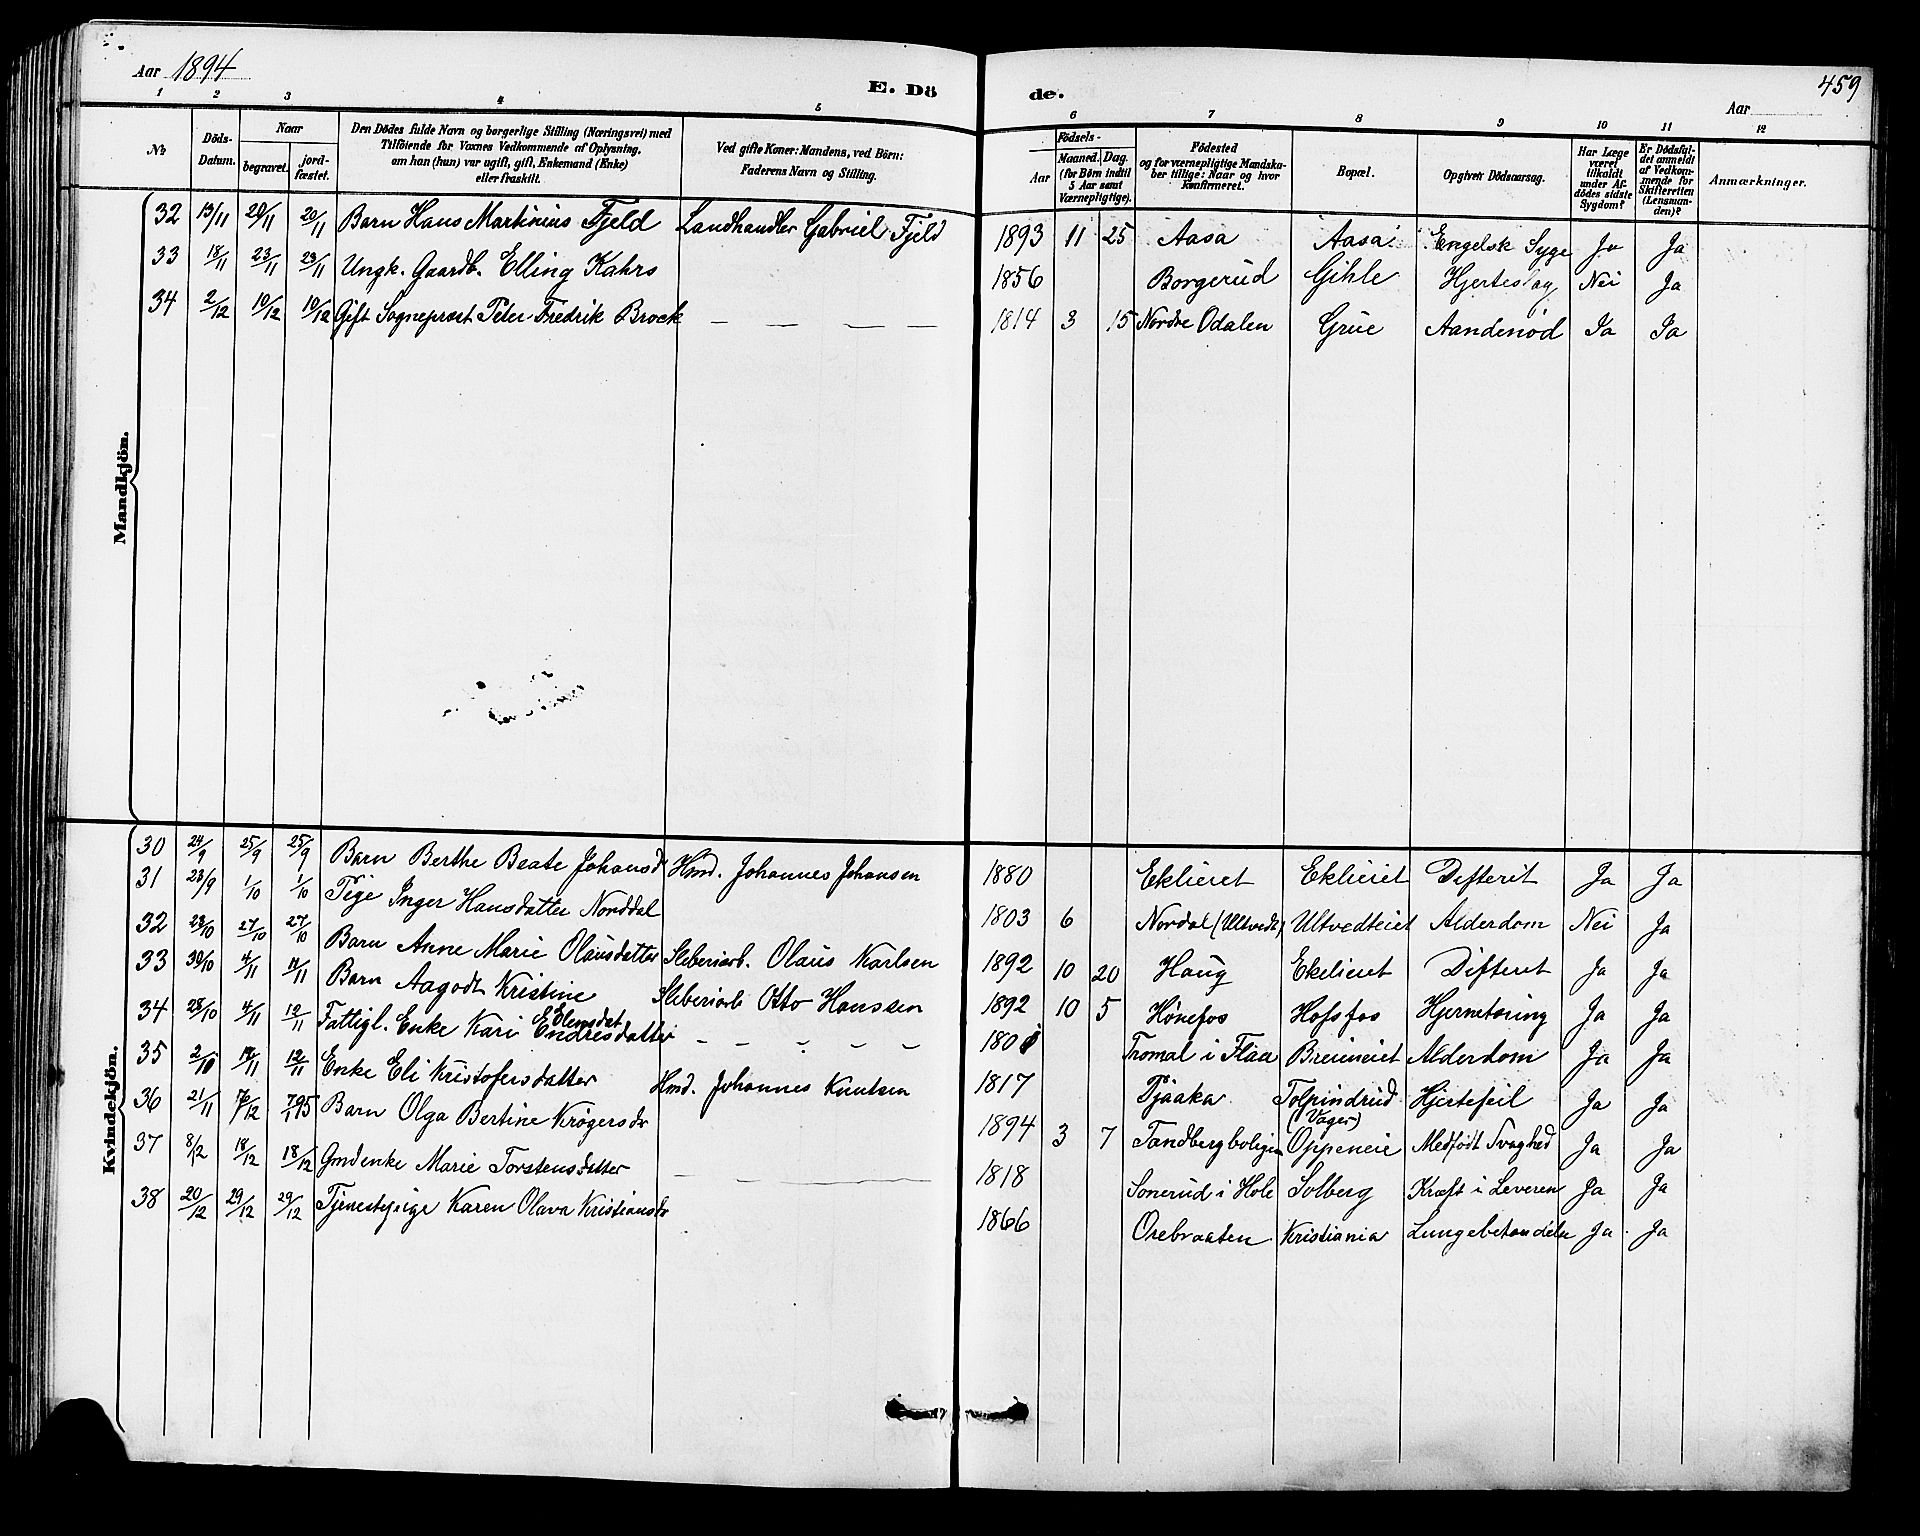 Aar 1894
E. Dö
de.
Aar
459
1 2 3 4 5 6 7 8 9 10 11 12
No
Döds-Datum.
Naar
begravet.
jord-fæstet.
Den Dödes fulde Navn og borgerlige Stilling (Næringsvei) med
Tilföiende for Voxnes Vedkommende af Oplysning,
om han (hun) var ugift, gift, Enkemand (Enke)
eller fraskilt.
Ved gifte Koner: Mandens, ved Börn:
Faderens Navn og Stilling.
Födsels-
Aar
Maaned. Dag.
(for Börn indtil
5 Aar samt
Værnepligtige).
Födested
og for værnepligtige Mandska-
ber tillige: Naar og hvor
konfirmeret.
Bopæl.
Opgiven Dödsaarsag.
Har Læge
været
tilkaldt
under Af-
dödes sidste
Sygdom?
Er Dödsfal-
det anmeldt
af Vedkom-
mende for
Skifteretten
(Lensman-
den)?
Anmærkninger.
Mandkjön.
32 13/11 20/11 20/11 Barn Hans Martinius Fjeld Landhandler Gabriel Fjeld 1893 11 25 Aasa Aasa Engelsk Syge Ja Ja
33 18/11 23/11 23/11 Ungk. Gaardb. Elling Kahrs 1856 Borgerud Gihle Hjerteslag Nei Ja
34 2/12 10/12 10/12 Gift Sogneprest Peter Fredrik Brock — — — — 1814 3 15 Nordre Odalen Grue Aandenød Ja Ja
Kvindekjön.
30 24/9 25/9 25/9 Barn Berthe Beate Johansd Hmd. Johannes Johansen 1880 Eklieiet Eklieiet Difterit Ja Ja
31 23/9 1/10 1/10 Pige Inger Hansdatter Norddal 1803 6 Nordal (Ultvedt) Ultvedteiet Alderdom Nei Ja
32 23/10 27/10 27/10 Barn Anne Marie Olausdatter Sliberiarb. Olaus Karlsen 1892 10 20 Haug Ekelieiet Difterit Ja Ja
33 30/10 4/11 11/11 Barn Aagodt Kristine Sliberiarb Otto Hanssen 1892 10 5 Hønefos Hofsfos Hjernetæring Ja Ja
34 28/10 4/11 12/11 Fattigl. Enke Kari Endresdatter — — — — — Tromal i Flaa Breieneiet Alderdom Ja Ja
35 2/10 12/11 Enke Eli Kristofersdatter 1817 Pjaaka Tolpinrud (Vager) Hjertefeil Ja Ja
36 21/11 7/1 95 Barn Olga Bertine Krøgersdr Hmd. Johannes Knutsen 1894 3 7 Tandbergboligen Oppeneie Medfødt Svaghed Ja Ja
37 8/12 18/12 18/12 Gmdenke Marie Torstensdatter — — — — 1818 Sonerud i Hole Solberg Kræft i Leveren Ja Ja
38 20/12 29/12 29/12 Tjenestepige Karen Olava Kristiansdr 1866 Orebraaten Kristiania Ja Ja